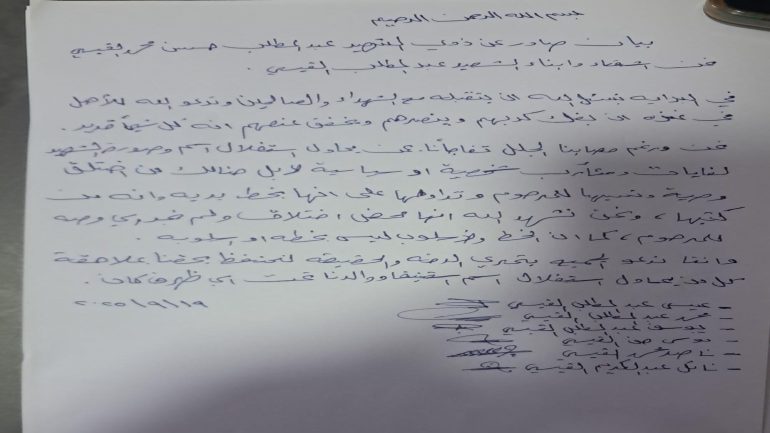 بسم الله الرحمن الرحيم
بيان صادر عن ذوي الشهيد عبد المطلب حسن محمد القيسي
نحن اشقاء وابناء الشهيد عبد المطلب القيسي .
في البداية نسئل الله ان يتقبله مع الشهداء والصالحين وندعو الله للأهل
في غزه ان يفك كربهم وينصرهم ويخفف عنهم انه كل شيئاً قدير .
نحن ورغم مصابنا الجلل تفاجأنا عن يحاول استغلال اسم وصورة الشهيد
لغايات ومئآرب شخصية او سياسية لا بل هنالك من اختلق
وصية ونسبها للمرحوم وتداولها على انها بخط يديه وانه من
كتبها ، ونحن نشهد الله انها محض اختلاق ولم نجد اي وصه
للمرحوم ، كما ان الخط والاسلوب ليس بخطه او اسلوبه .
واننا ندعو الجميع بتحري الدقه والحقيقه لنحتفظ بحقنا بملاحقة
كل من يحاول استغلال اسم شقيقنا ووالدنا تحت اي ظرف كان .
٢٠٢٥/٩/١٩
- عيسى عبد المطلب القيسي
- محمد عبد المطلب القيسي
- يوسف عبد المطلب القيسي
- موسى حسن القيسي
- ناصر محمد القيسي
- نائل عبد الكريم القيسي